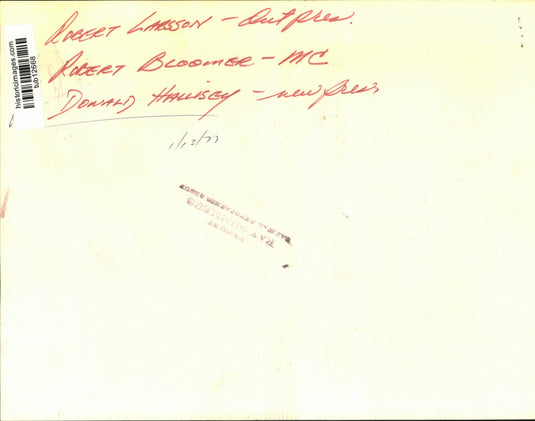 ROBERT LARSSON - Out pres.
ROBERT BLOOMER - MC
DONALD HALLISEY - new pres
1/13/77
historicimages.com
tub12668